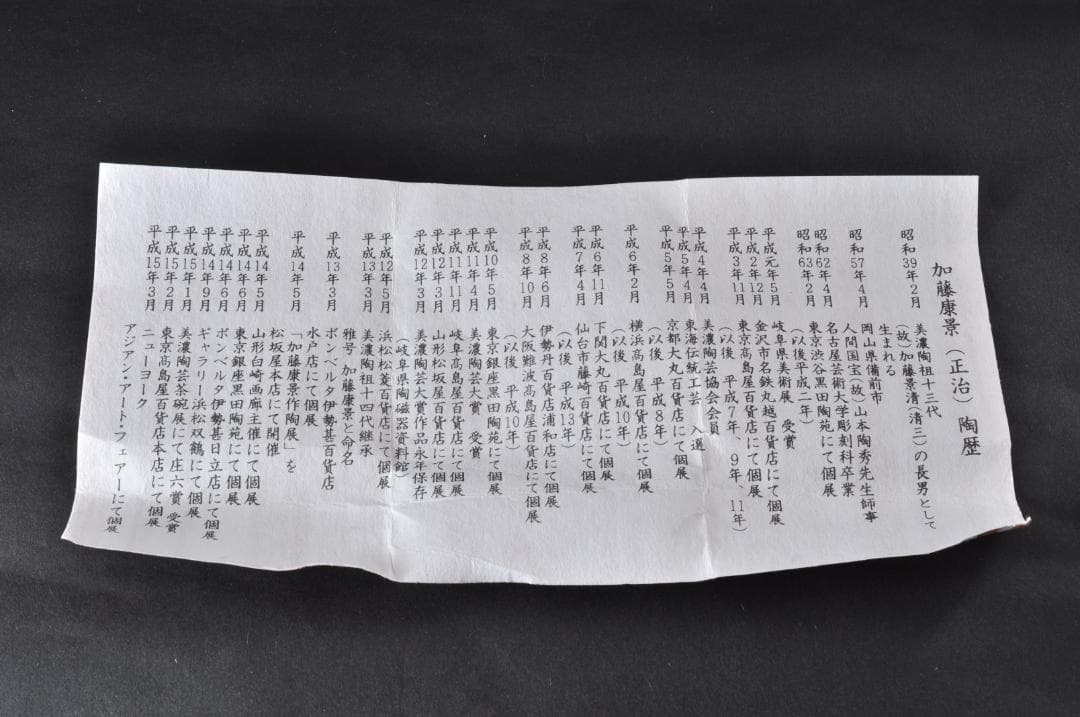 加藤康景（正治）陶歴
昭和39年2月 美濃陶祖十三代
（故）加藤景清（清三）の長男として
生まれる
昭和57年4月 岡山県備前市
人間国宝（故）山本陶秀先生師事
昭和62年4月 名古屋芸術大学彫刻科卒業
昭和63年2月 東京渋谷黒田陶苑にて個展
（以後平成二年）
平成元年5月 岐阜県美術展 受賞
平成2年12月 金沢市名鉄丸越百貨店にて個展
平成3年11月 東京高島屋百貨店にて個展
（以後 平成7年、9年、11年）
平成4年4月 美濃陶芸協会会員
平成5年4月 東海伝統工芸 入選
平成5年5月 京都大丸百貨店にて個展
（以後 平成8年）
平成6年2月 横浜高島屋百貨店にて個展
（以後 平成10年）
平成6年11月 下関大丸百貨店にて個展
平成7年4月 仙台市藤崎百貨店にて個展
（以後 平成13年）
平成8年6月 伊勢丹百貨店浦和店にて個展
平成8年10月 大阪難波高島屋百貨店にて個展
（以後 平成10年）
平成10年5月 東京銀座黒田陶苑にて個展
平成11年4月 美濃陶芸大賞 受賞
平成11年11月 岐阜高島屋百貨店にて個展
平成12年3月 山形松坂屋百貨店にて個展
平成12年3月 美濃陶芸大賞作品永年保存
（岐阜県陶磁器資料館）
平成12年5月 浜松松菱百貨店にて個展
平成13年3月 美濃陶祖十四代継承
雅号 加藤康景と命名
平成13年3月 ボンベルタ伊勢甚百貨店
水戸店にて個展
平成14年5月 「加藤康景作陶展」を
松坂屋本店にて開催
平成14年5月 山形白崎画廊主催にて個展
平成14年6月 東京銀座黒田陶苑にて個展
平成14年6月 ボンベルタ伊勢甚日立店にて個展
平成14年9月 ギャラリー浜松双鶴にて個展
平成15年1月 美濃陶芸茶碗展にて庄六賞 受賞
平成15年2月 東京高島屋百貨店本店にて個展
平成15年3月 ニューヨーク
アジアン・アート・フェアーにて個展